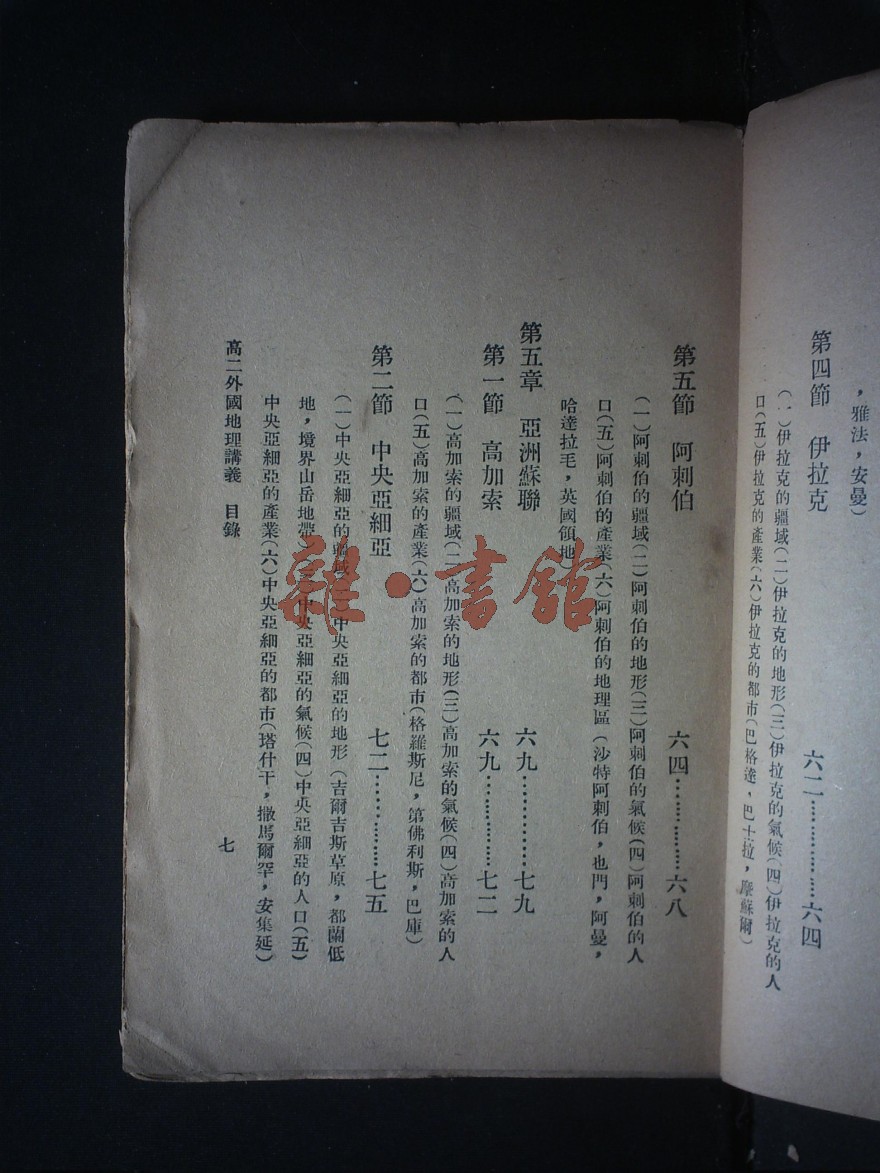 ，雅法，安曼）
第四節　伊拉克　六二……………六四
（一）伊拉克的疆域（二）伊拉克的地形（三）伊拉克的氣候（四）伊拉克的人
口（五）伊拉克的產業（六）伊拉克的都市（巴格達，巴士拉，摩蘇爾）
第五節　阿刺伯　六四……………六八
（一）阿刺伯的疆域（二）阿刺伯的地形（三）阿刺伯的氣候（四）阿刺伯的人
口（五）阿刺伯的產業（六）阿刺伯的地理區（沙特阿刺伯，也門，阿曼，
哈達拉毛，英國領地）
第五章　亞洲蘇聯　六九……………七九
第一節　高加索　六九……………七二
（一）高加索的疆域（二）高加索的地形（三）高加索的氣候（四）高加索的人
口（五）高加索的產業（六）高加索的都市（格羅斯尼，第佛利斯，巴庫）
第二節　中央亞細亞　七二……………七五
（一）中央亞細亞的疆域（二）中央亞細亞的地形（吉爾吉斯草原，都蘭低
地，境界山岳地帶）（三）中央亞細亞的氣候（四）中央亞細亞的人口（五）
中央亞細亞的產業（六）中央亞細亞的都市（塔什干，撒馬爾罕，安集延）
高二外國地理講義　目錄　七
雜·書館